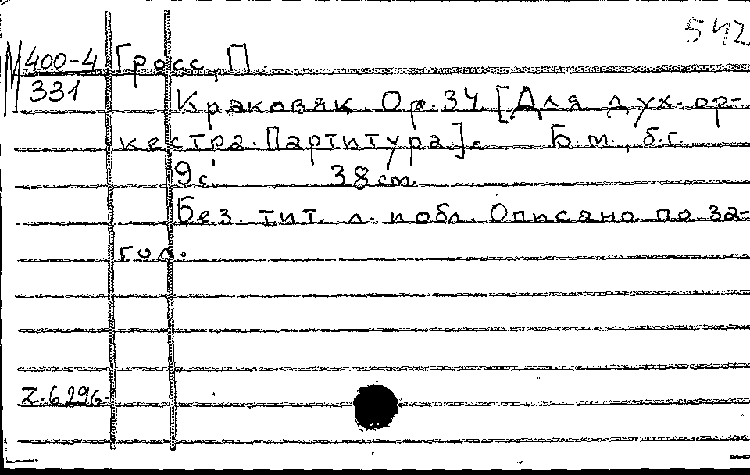 542
М 400-4 Гросс, П.
331
Краковяк Ор. 34. [Для дух. ор-
кестра. Партитура]. Б.м., б.г.
9 с. 38 см.
Без. тит. л. и обл. Описано по за-
гол.
Z. 6296.